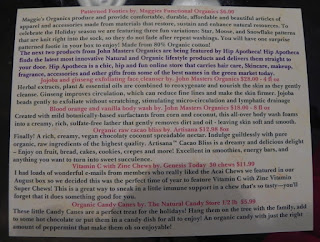 Patterned Footies by. Maggies Functional Organics $6.99
Maggie's Organics produce and provide comfortable, durable, affordable and beautiful articles of
apparel and accessories made from materials that restore, sustain and enhance natural resources. To
celebrate the Holiday season we are featuring three fun variations: Star, Mouse, and Snowflake patterns
that are knit right into the sock, so they do not fade after repeat washings. You will have one surprise
patterned footie in your box to enjoy! Made from 80% Organic cotton!
The next two products from John Masters Organics are being featured by Hip Apotheca! Hip Apotheca
finds the latest most innovative Natural and Organic lifestyle products and delivers them straight to
your door. Hip Apotheca is a chic, hip and online store that carries hair care, Skincare, makeup,
fragrance, accessories and other gifts from some of the best names in the green market today.
Jojoba and ginseng exfoliating face cleanser by. John Masters Organics $28.00 - 4 fl oz
Herbal extracts, plant & essential oils are combined to reoxygenate and nourish the skin as they gently
cleanse. Ginseng improves circulation, which can reduce fine lines and make the skin firmer. Jojoba
beads gently to exfoliate without scratching, stimulating micro-circulation and lymphatic drainage
Blood orange and vanilla body wash by. John Masters Organics $18.00 - 8 fl oz
Created with mild botanically-based surfactants from corn and coconut, this all-over body wash foams
into a creamy, rich, sulfate-free lather that gently removes dirt and oil - leaving skin soft and smooth.
Organic raw cacao bliss by. Artisana $12.98 8oz
Finally! A rich, creamy, vegan chocolaty coconut spreadable nectar. Indulge guiltlessly with pure
organic, raw ingredients of the highest quality. Artisana™ Cacao Bliss is a dreamy and delicious delight
- Enjoy on fruit, bread, cakes, cookies, crepes and more! Excellent in smoothies, energy bars, and
anything you want to turn into sweet succulence.
Vitamin C with Zinc Chews by. Genesis Today 30 chews $11.99
I had loads of wonderful e-mails from members who really liked the Acai Chews we featured in our
August box so we decided this was the perfect time of year to feature Vitamin C with Zinc Vitamin
Super Chews! This is a great way to sneak in a little immune support in a chew that's so tasty—you'll
forget that it does something good for you.
Organic Candy Canes by. The Natural Candy Store 1/2 lb $5.99
These little Candy Canes are a perfect treat for the holiday! Hang them on the tree with the family, add
to some hot chocolate or put them in a candy dish for all to enjoy! An organic candy with just the right
amount of peppermint that make them oh so enjoyable!